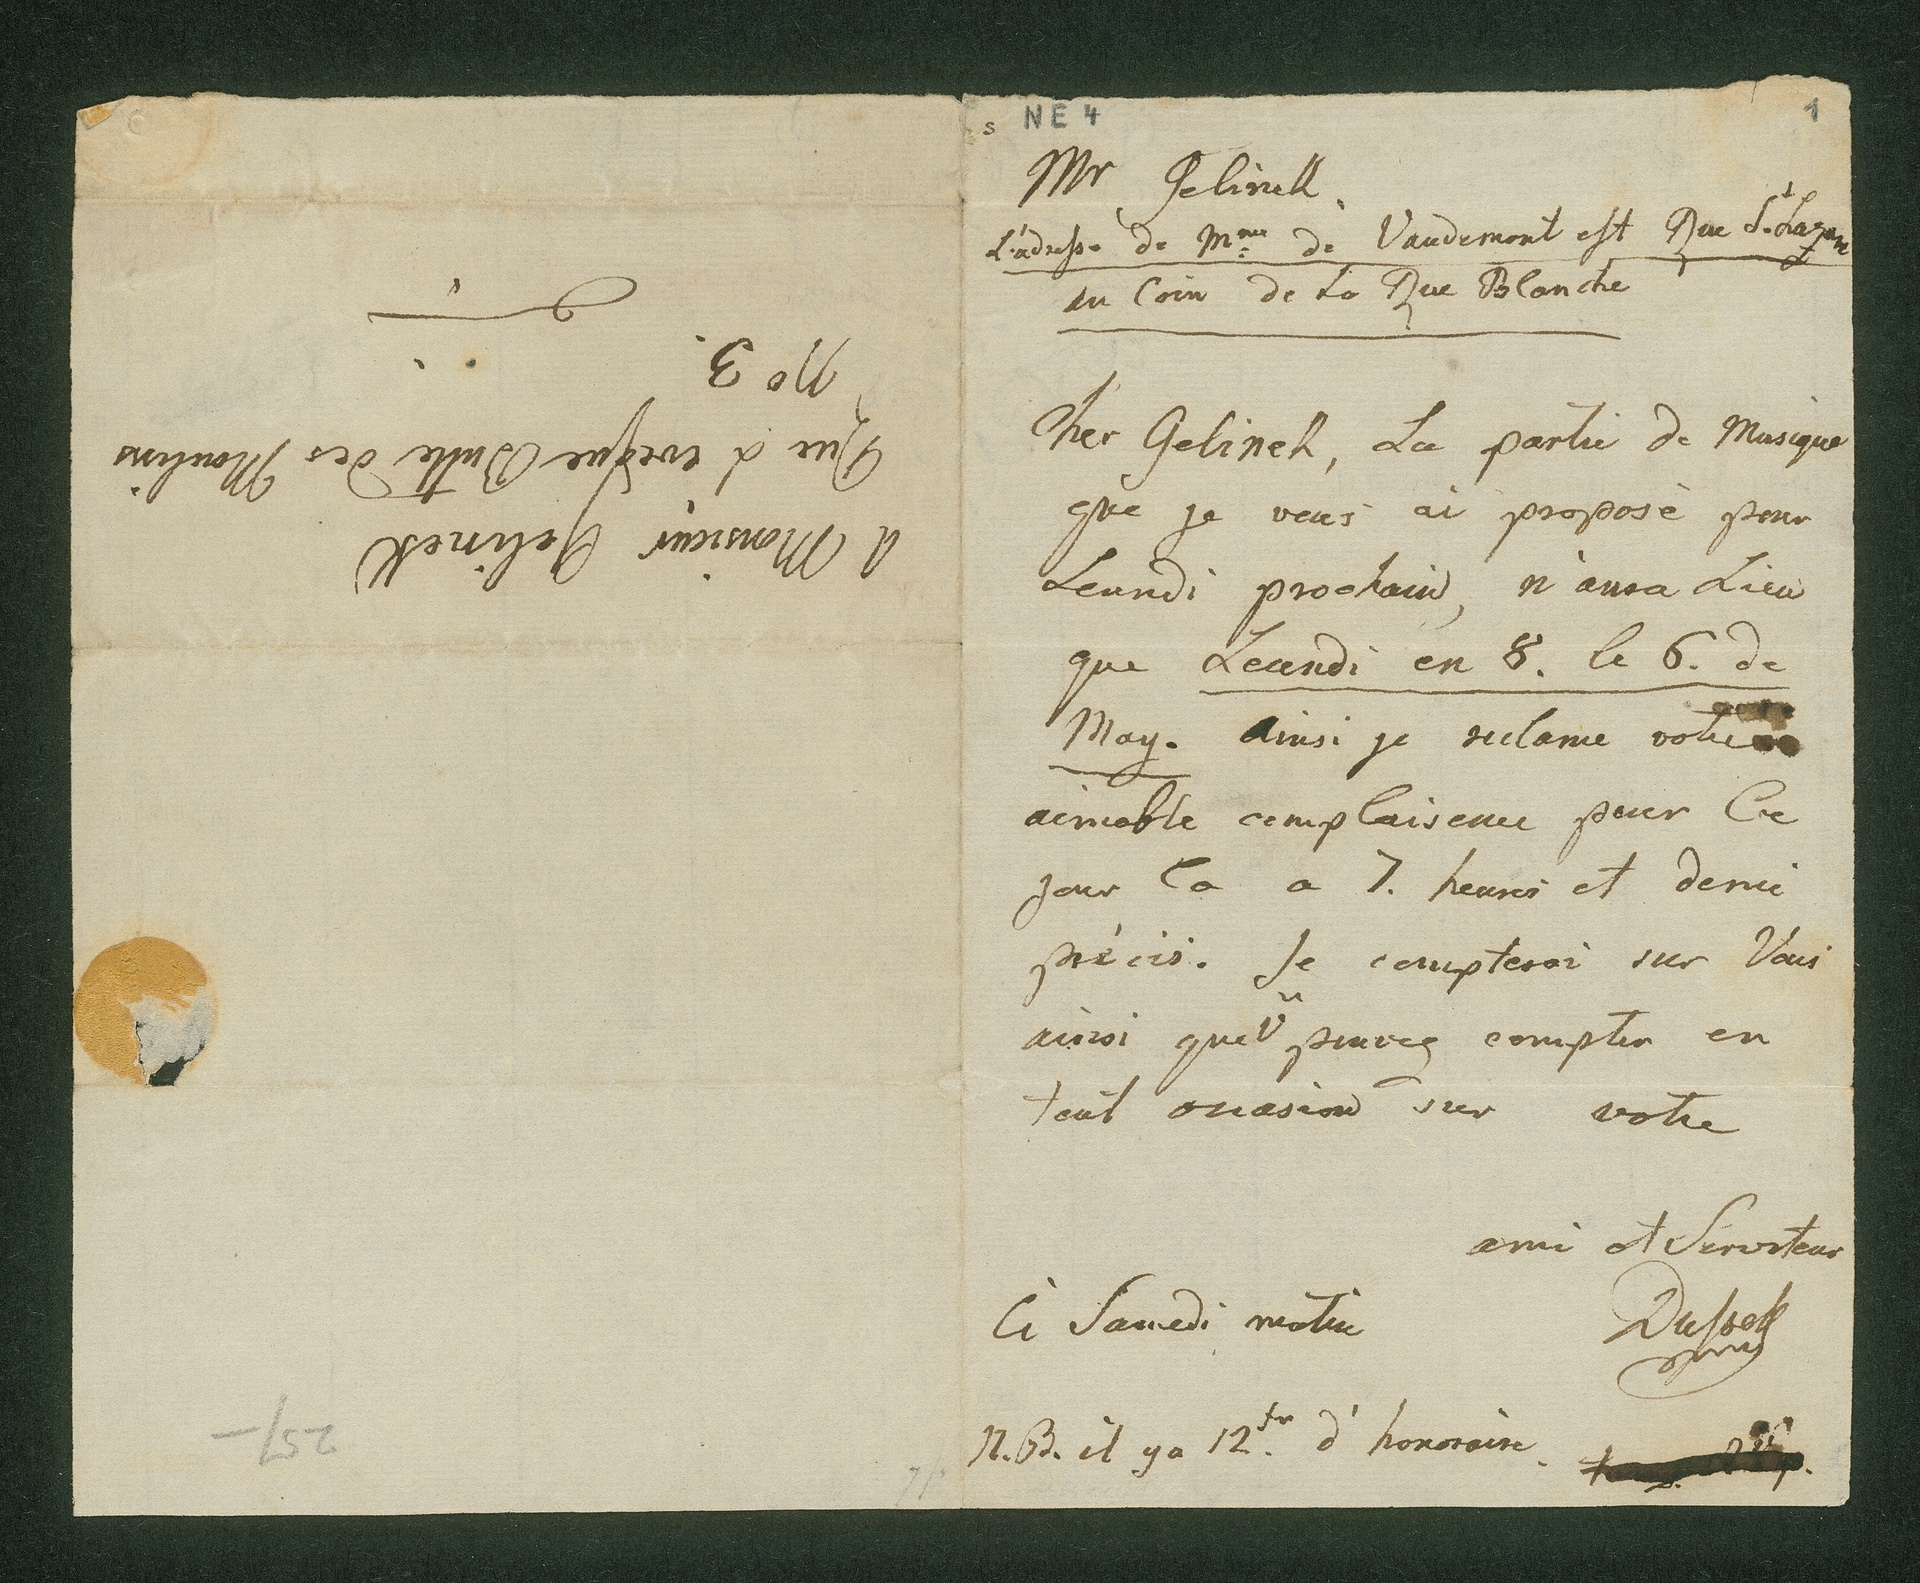 A Monsieur Gelinek
Rue d'evêque Butte des Moulins
No 3.
25/–
s NE 4
1
Mr Gelinek.
L'adresse de Mme de Vaudemont est Rue St. Lazare
au Coin de La Rue Blanche
Cher Gelinek, La partie de Musique
que je vous ai proposé pour
Leundi prochain, n'aura Lieu
que Leundi en 8. le 6. de
May. ainsi je reclame votre
aimable complaisence pour Ce
jour la a 7. heures et demie
précis. Je compterai sur Vous
ainsi que V pouvez compter en
tout occasion sur votre
ami et Serviteur
Ce Samedi matin
Dussek
N.B. il y a 12 fr. d'honoraire.